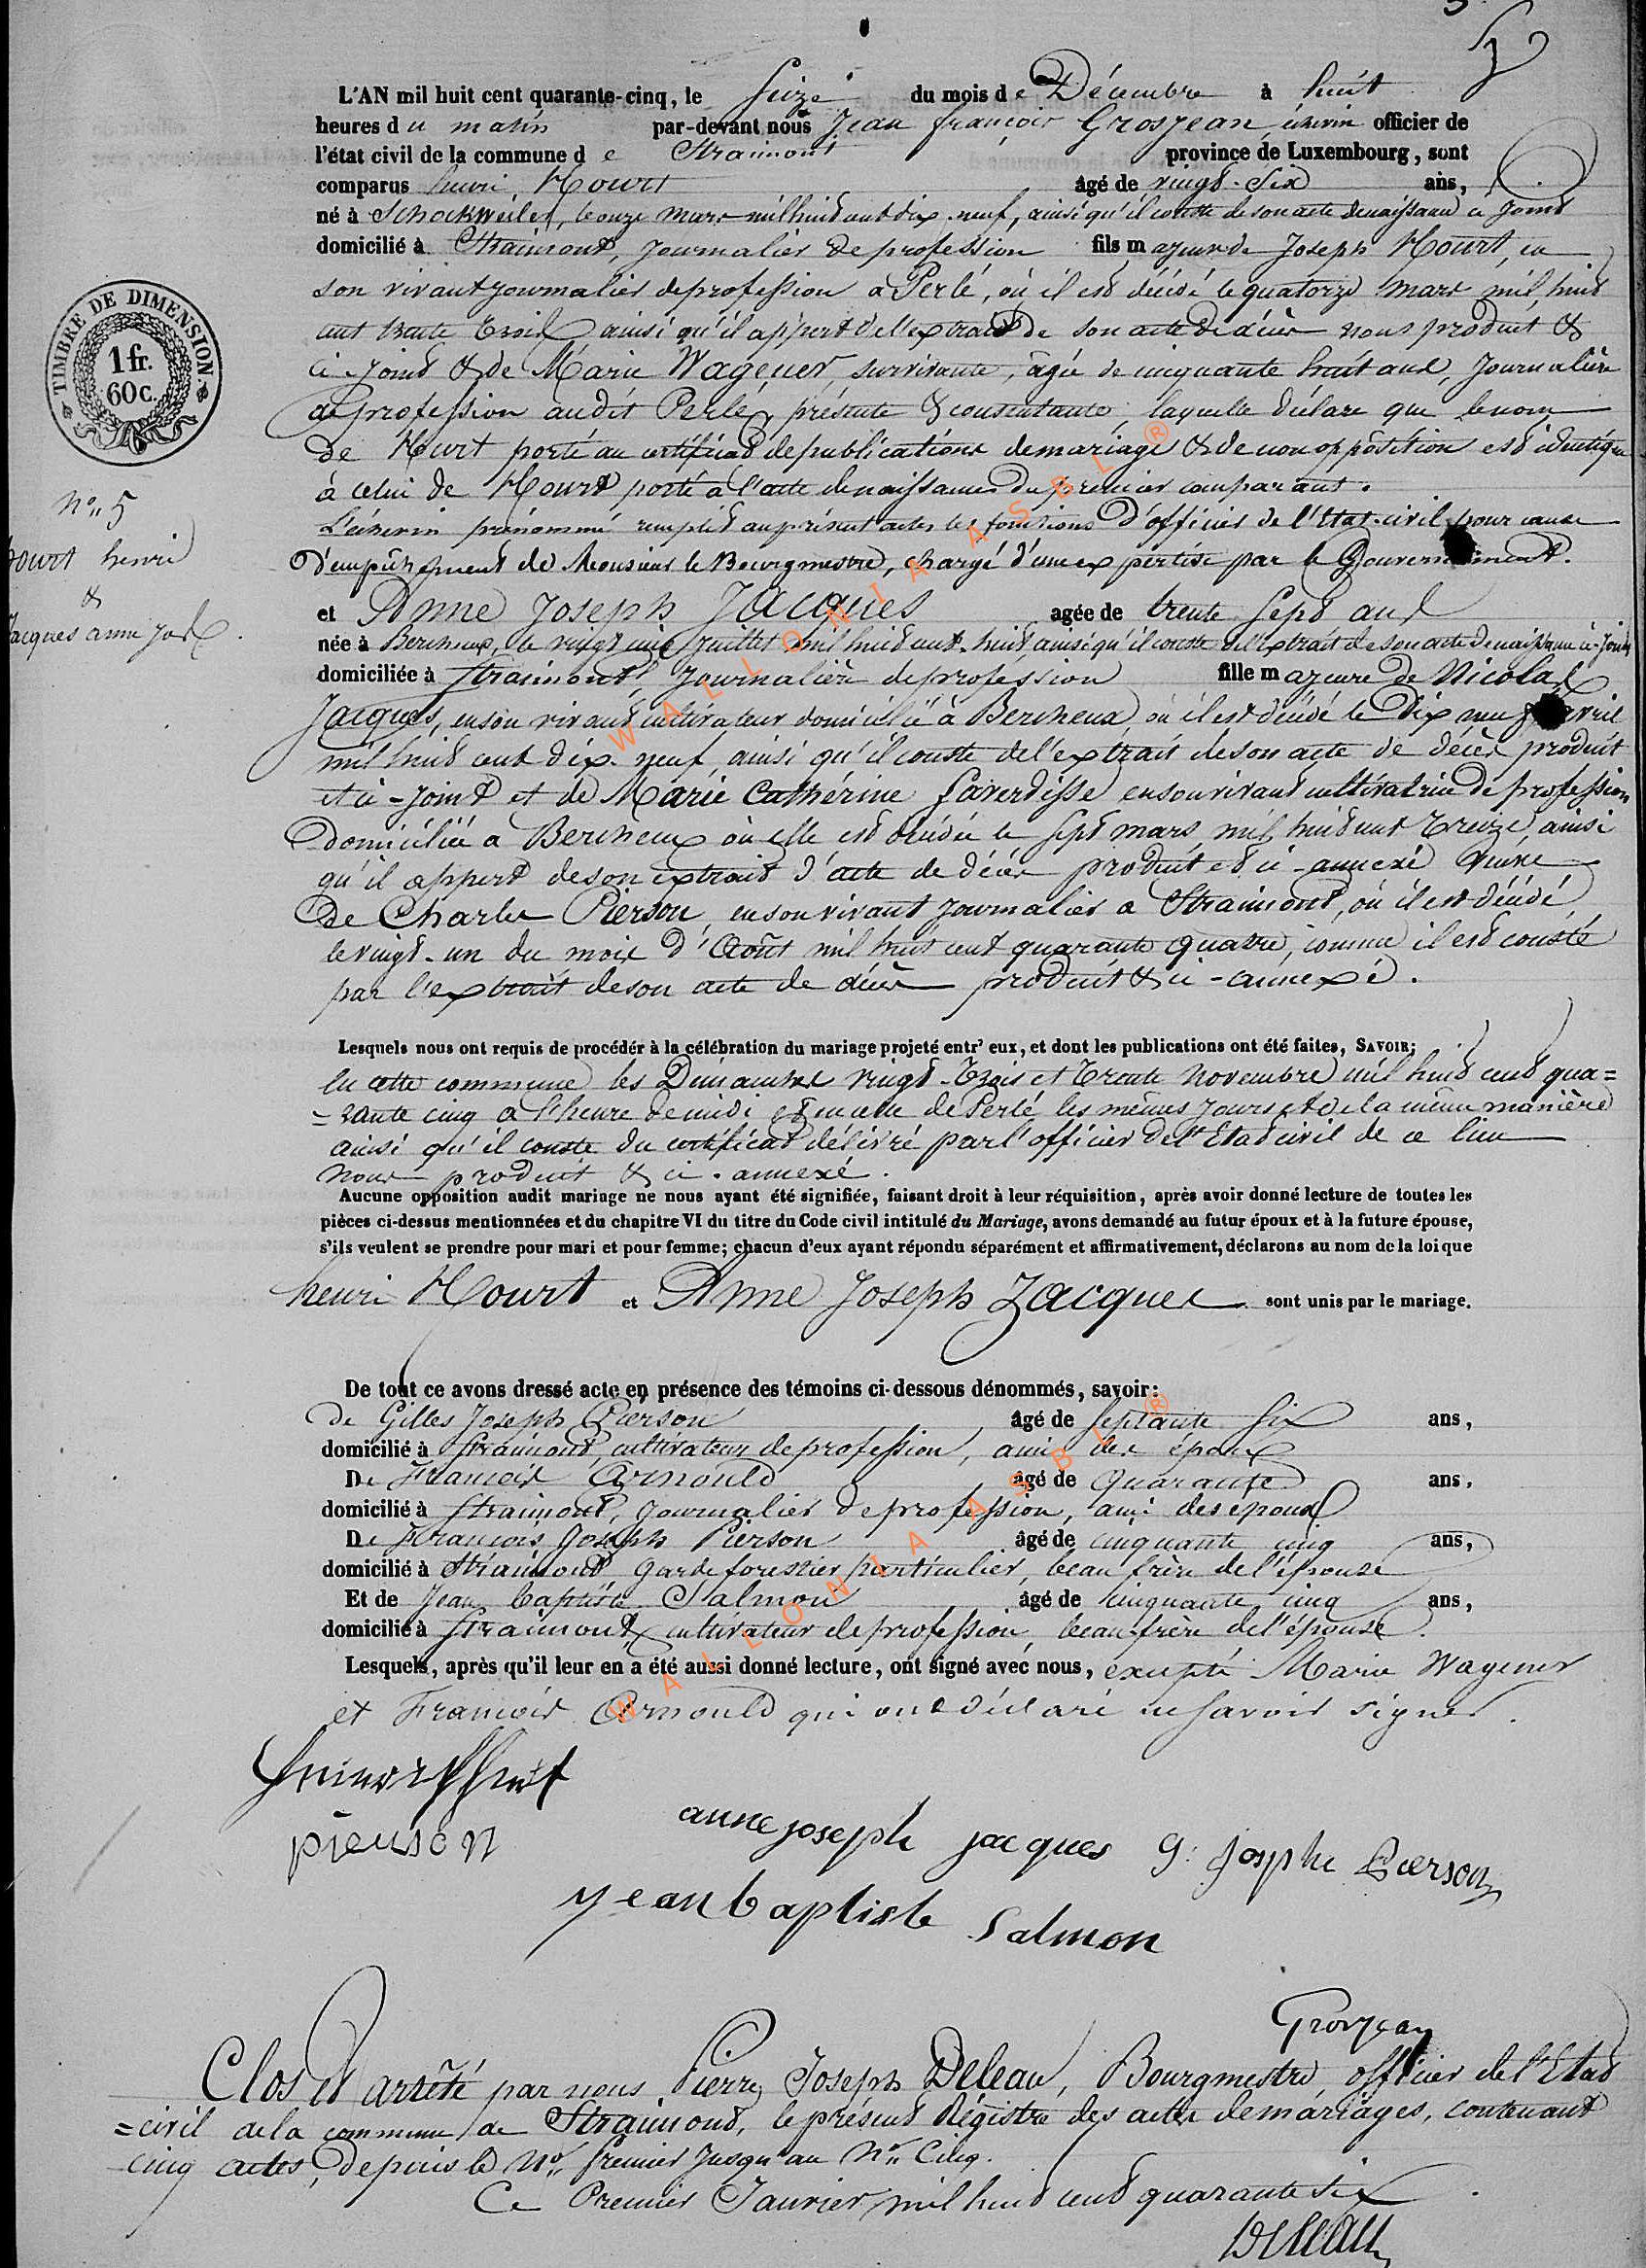 L'AN mil huit cent quarante-cinq, le Seize du mois de Décembre à huit
heures du matin par-devant nous Jean françois Grosjean, échevin officier de
l'état civil de la commune de Straimont province de Luxembourg, sont
comparus henri Hourt âgé de vingt-Six ans,
né à Schockweiler, le onze mars mil huit cent dix-neuf, ainsi qu'il conste de son acte de naissance ci-joint
domicilié à Straimont, journalier de profession fils majeur de Joseph Hourt, en
son vivant journalier de profession à Perlé, où il est décédé le quatorze mars mil huit
cent trente trois ainsi qu'il appert de l'extrait de son acte de décès nous produit &
ci-joint & de Marie Wagener, survivante, âgée de cinquante huit ans, journalière
de profession audit Perlé, présente & consentante, laquelle déclare que le nom
de Hurt porté au certificat de publications de mariage & de non opposition est identique
à celui de Hourt porté à l'acte de naissance du premier comparant.
L'échevin prénommé remplit au présent acte les fonctions d'officier de l'Etat-civil pour cause
d'empêchement de Monsieur le Bourgmestre, chargé d'une expertise par le Gouvernement.
et Anne Joseph Jacques agée de trente sept ans
née à Bercheux, le vingt une juillet mil huit cent huit, ainsi qu'il conste de l'extrait de son acte de naissance ci-joint
domiciliée à Straimont, journalière de profession fille majeure de Nicolas
Jacques, en son vivant cultivateur domicilié à Bercheux où il est décédé le dix neuf avril
mil huit cent dix-neuf, ainsi qu'il conste de l'extrait de son acte de décès produit
et ci-joint et de Marie Cathérine Laverdisse en son vivant cultivatrice de profession
domiciliée à Bercheux où elle est décédée le sept mars mil huit cent treize, ainsi
qu'il appert de son extrait d'acte de décès produit et ci-annexé Veuve
de Charles Pierson, en son vivant journalier à Straimont, où il est décédé
le vingt-un du mois d'Août mil huit cent quarante quatre, comme il est consté
par l'extrait de son acte de décès produit & ci-annexé.
Lesquels nous ont requis de procéder à la célébration du mariage projeté entr' eux, et dont les publications ont été faites, SAVOIR:
En cette commune les Dimanches vingt-trois et trente Novembre mil huit cent qua=
=rante cinq à l'heure de midi et en celle de Perlé les mêmes jours et de la même manière
ainsi qu'il conste du certificat délivré par l'officier de l'Etat civil de ce lieu
nous produit & ci-annexé.
Aucune opposition audit mariage ne nous ayant été signifiée, faisant droit à leur réquisition, après avoir donné lecture de toutes les
pièces ci-dessus mentionnées et du chapitre VI du titre du Code civil intitulé du Mariage, avons demandé au futur époux et à la future épouse,
s'ils veulent se prendre pour mari et pour femme; chacun d'eux ayant répondu séparément et affirmativement, déclarons au nom de la loi que
henri Hourt et Anne Joseph Jacques sont unis par le mariage.
De tout ce avons dressé acte en présence des témoins ci-dessous dénommés, savoir:
de Gilles Joseph Pierson âgé de Septante Six ans,
domicilié à Straimont, cultivateur de profession, ami des époux
De François Arnould âgé de quarante ans,
domicilié à Straimont, journalier de profession, ami des époux
De François Joseph Pierson âgé de cinquante cinq ans,
domicilié à Straimont garde forestier particulier, beau frère de l'épouse
Et de Jean baptiste Salmon âgé de cinquante cinq ans,
domicilié à Straimont, cultivateur de profession, beau-frère de l'épouse.
Lesquels, après qu'il leur en a été aussi donné lecture, ont signé avec nous, excepté Marie Wagener
et François Arnould qui ont déclaré ne savoir signer.
pierson
anne joseph jacques
g: josphe Pierson
jean baptiste Salmon
Grosjean
Clos et arrêté par nous Pierre Joseph Deleau, Bourgmestre, officier de l'Etat
=civil de la commune de Straimont, le présent Régistre des actes de mariages, contenant
cinq actes, depuis le No. premier jusqu'au No. Cinq.
Ce Premier Janvier mil huit cent quarante six
Deleau
TIMBRE DE DIMENSION.
1 fr.
60 c.
No. 5
hourt henri
&
Jacques anne jos.
WALLONIA ASBL ®
WALLONIA ASBL ®